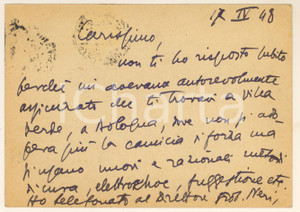 17 IV 48
Carissimo,
non ti ho risposto subito
perché mi avevano autorevolmente
assicurato che ti trovavi a villa
Verde, a Bologna, dove non si ado-
pera più la camicia di forza ma
si usano nuovi e razionali metodi
di cura, elettrochoc, suggestione etc.
Ho telefonato al Direttore Prof. Neri,